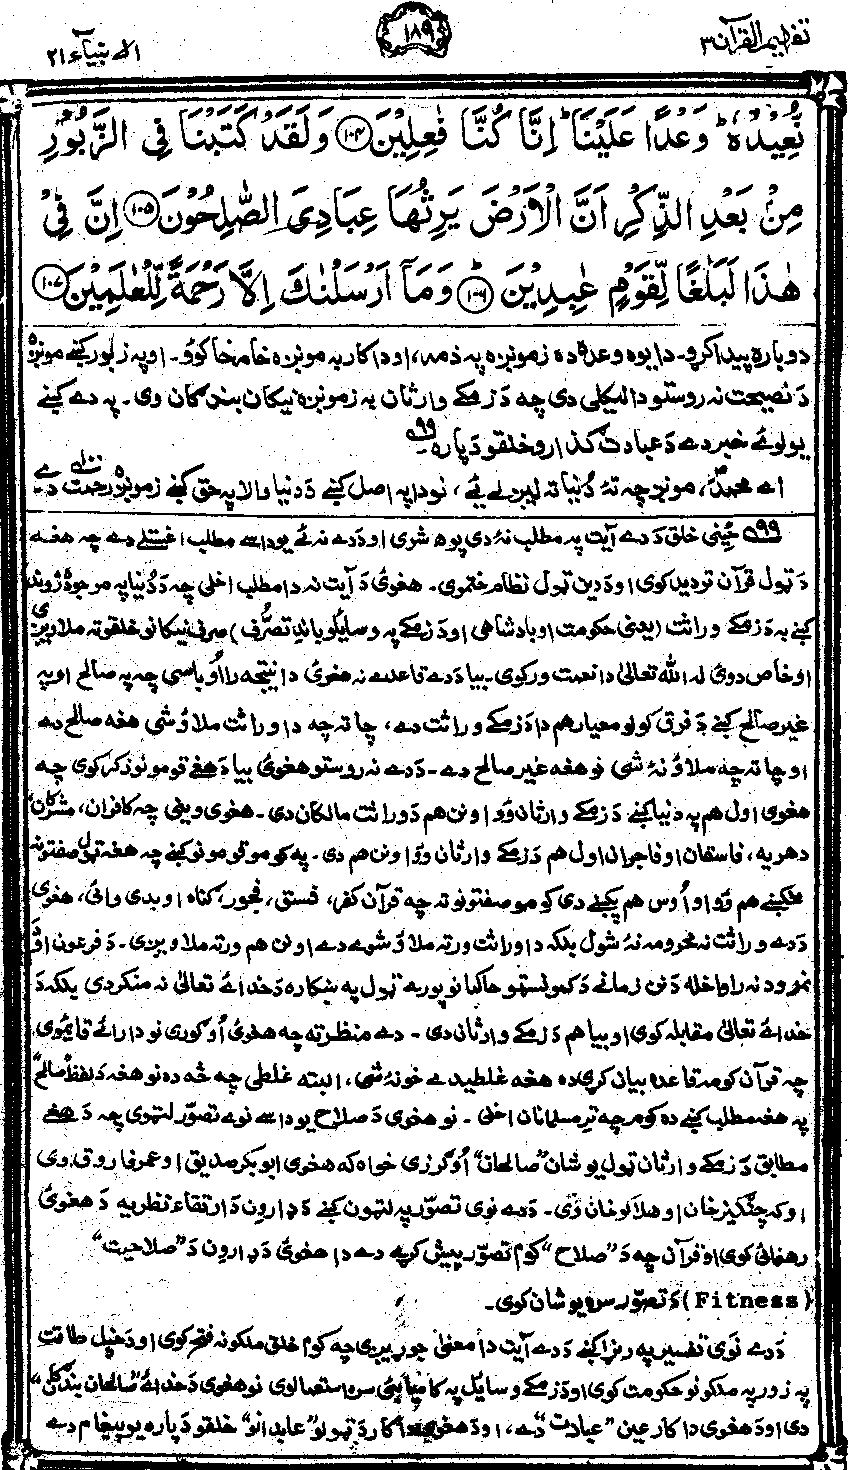 تفهیم القرآن ۳
۱۸۹
الانبیآء ۲۱
نُّعِيْدُهٗ ؕ وَعْدًا عَلَيْنَا ؕ اِنَّا كُنَّا فٰعِلِيْنَ ﴿۱۰۴﴾ وَلَقَدْ كَتَبْنَا فِي الزَّبُوْرِ
مِنْۢ بَعْدِ الذِّكْرِ اَنَّ الْاَرْضَ يَرِثُهَا عِبَادِيَ الصّٰلِحُوْنَ ﴿۱۰۵﴾ اِنَّ فِيْ
هٰذَا لَبَلٰغًا لِّقَوْمٍ عٰبِدِيْنَ ﴿۱۰۶﴾ وَمَآ اَرْسَلْنٰكَ اِلَّا رَحْمَةً لِّلْعٰلَمِيْنَ ﴿۱۰۷﴾
دوباره پیدا کړو۔ دا یوه وعده ده زمونږه په ذمه، او دا کار به مونږه خامخا کوؤ۔ او په زبور کښے مونږه
دَ نصیحت نه روستو دا لیکلی دی چه دَ زمکے وارثان به زمونږه نیکان بندګان وی۔ په دے کښے
یو لوئے خبر دے دَ عبادت ګذارو خلقو دَ پاره۔ ۹۹
اے محمدؐ، مونږ چه تهٔ دُنیا ته لیږلے یئے، نو دا په اصل کښے دَ دنیا والا په حق کښے زمونږه رحمت دے۔ ۱۰۰
۹۹ ځینی خلق دَ دے آیت په مطلب نهٔ دی پوه شوی او دَ دے نه ئے یو داسے مطلب اغستلے دے چه هغه
دَ ټول قرآن تردید کوی او دَ دین ټول نظام ختموی۔ هغوی دَ آیت نه دا مطلب اخلی چه دَ دُنیا په موجوده ژوند
کښے به دَ زمکے وراثت (یعنی حکومت او بادشاهی او دَ زمکے په وسایلو باندِ تصرُّف) صرف نیکانو خلقو ته ملاویږی
او خاص دوئ له الله تعالیٰ دا نعمت ورکوی۔ بیا دَ دے قاعدے نه هغوئ دا نتیجه را اُوباسی چه په صالح او په
غیر صالح کښے دَ فرق کولو معیار هم دا دَ زمکے وراثت دے، چا ته چه دا وراثت ملاؤ شی هغه صالح دے
او چا ته چه ملاؤ نهٔ شی نو هغه غیر صالح دے۔ دَ دے نه روستو هغوئ بیا دَ هغے قومونو ذکر کوی چه
هغوی اول هم په دنیا کښے دَ زمکے وارثان وؤ او نن هم دَ وراثت مالکان دی۔ هغوی وینی چه کافران، مشرکان
دهریه، فاسقان او فاجران اول هم دَ زمکے وارثان وؤ او نن هم دی۔ په کومو قومونو کښے چه هغه ټول صفتونه
هم وؤ او اُوس هم پکښے دی کومو صفتونو ته چه قرآن کفر، فسق، فجور، ګناه او بدی وائی، هغوی
دَ دے وراثت نه محرومه نهٔ شول بلکه دا وراثت ورته ملاؤ شوے دے او نن هم ورته ملاویږی۔ دَ فرعون او
نمرود نه را واخله دَ نن زمانے دَ کمونستو حاکمانو پورے ټول په ښکاره دَ خدائے تعالیٰ نه منکر دی بلکه دَ
خدائے تعالیٰ مقابله کوی او بیا هم دَ زمکے وارثان دی۔ دے منظر ته چه هغوئ اُوګوری نو دا رائے قایموی
چه قرآن کومه قاعده بیان کړی ده هغه غلطیدے خو نهٔ شی، البته غلطی چه څه ده نو هغه دَ لفظ صالحؐ
په هغه مطلب کښے ده کوم چه تر مسلمانان اخلی۔ نو هغوی دَ صلاح یو داسے نوے تصوّر لټوی چه دَ هغے
مطابق دَ زمکے وارثان ټول یو شان "صالحان" اُوګرزی خواه که هغوی ابوبکر صدیق او عمر فاروق وی
او که چنګیزخان او هلاکوخان وی۔ دَ دے نوی تصوّر په لټون کښے دَ ډارون دَ ارتقاء نظریه دَ هغوئ
رهنمائی کوی او قرآن چه دَ "صلاح" کوم تصوّر پیش کړے دے دا هغوئ دَ ډارون دَ "صلاحیت"
(Fitness) دَ تصوّر سره یو شان کوی۔
دَ دے نوی تفسیر په رنړا کښے دَ دے آیت دا معنیٰ جوړیږی چه کوم خلق ملکونه فتح کوی او دَ خپل طاقت
په زور په ملکونو حکومت کوی او دَ زمکے وسایل په کامیابئ سره استعمالوی نو هغوی دَ خدائے "صالحان بندګان"
دی او دَ هغوی دا کار عین "عبادت" دے، او دَ هغوی دا کار دَ ټولو "عابدانو" خلقو دَ پاره یو پیغام دے